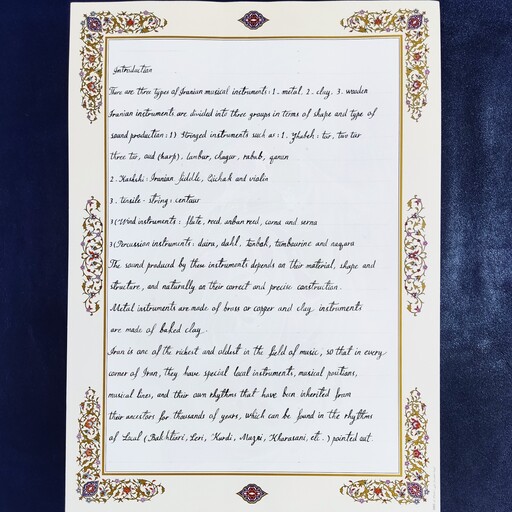 Introduction
There are three types of Iranian musical instruments: 1. metal, 2. clay, 3. wooden
Iranian instruments are divided into three groups in terms of shape and type of
sound production: 1) Stringed instruments such as: 1. Zhabeh: tar, two tar
three tar, oud (harp), tanbur, chagur, rabab, qanun
2. Kashshi: Iranian fiddle, Qichak and violin
3. tensile-string: centaur
2( Wind instruments: flute, reed, anban reed, corna and serna
3( Percussion instruments: daira, dahl, tonbak, tambourine and naqara
The sound produced by these instruments depends on their material, shape and
structure, and naturally on their correct and precise construction.
Metal instruments are made of brass or copper and clay instruments
are made of baked clay.
Iran is one of the richest and oldest in the field of music, so that in every
corner of Iran, they have special local instruments, musical positions,
musical lines, and their own rhythms that have been inherited from
their ancestors for thousands of years, which can be found in the rhythms
of Local (Bakhtiari, Leri, Kurdi, Mazni, Kharasani, etc.) pointed out.